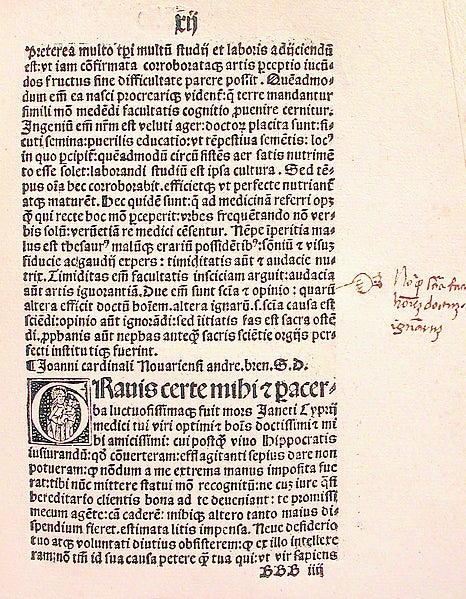 xij
Preterea multo tp̄i multū studij et laboris adijciendū
est:vt iam cōfirmata corroborataqʒ artis p̱ceptio iucū⸗
dos fructus sine difficultate parere possit. Quēadmo⸗
dum em̄ ea nasci procreariqʒ vident̄: q̄ terre mandantur
simili mō medēdi facultatis cognitio p̱uenire cernitur.
Ingeniū em̄ nr̄m est veluti ager: doctoꝝ placita sunt: si⸗
cuti semina: puerilis educatio: vt tēpestiua semētis: loc⁹
in quo p̱cipit̄: quēadmodū circūsistēs aer satis nutrimē
to esse solet: laborandi studiū est ipsa cultura. Sed tē⸗
pus oīa hec corroborabit. efficietqʒ vt perfecte nutriant̄
atqʒ maturēt. Hec quidē sunt: q̄ ad medicinā referri opʒ
q̄ qui recte hoc mō p̱ceperit: vrbes frequētando nō ver⸗
bis solū: verūetiā re medici cēsentur. Nēpe īperitia ma⸗
lus est thesaur⁹ malūqʒ erariū possidētib⁹: sōniū ⁊ visuʒ
fiducie ac gaudij expers: timiditatis aūt ⁊ audacie nu⸗
trix. Timiditas em̄ facultatis insciciam arguit: audacia
aūt artis ignorantiā. Due em̄ sunt scīa ⁊ opinio: quarū
altera efficit doctū hoīem. altera ignarū. s. scīa causa est
sciēdi: opinio aūt ignorādi: sed iītiatis fas est sacra ostē
di. p̱phanis aūt nephas anteqʒ sacris sciētie orgijs per⸗
fecti institutiqʒ fuerint.
¶ Joanni cardinali Nouariensi andre. bren. S. D.
GRauis certe mihi ⁊ p̱acer⸗
ba luctuosissimaqʒ fuit mors Janeti Cyprij
medici tui viri optimi ⁊ hoīs doctissimi ⁊ mi
hi amicissimi: cui postqʒ viuo Hippocratis
iusiurandū: qd̄ cōuerteram: efflagitanti sepius dare non
potueram: q̱ nōdum a me extrema manus imposita fue
rat: tibi nūc mittere statui mō recognitū: ne cuʒ iure q̄si
hereditario clientis bona ad te deueniant: te promissi
mecum agēte: cā caderē: mihiqʒ altero tanto maius di⸗
spendium fieret. estimata litis impensa. Neue desiderio
tuo atqʒ voluntati diutius obsisterem: q̱ ex illo intellexe
ram: nō tm̄ id sua causa petere q̱ tua qui: vt vir sapiens
BBB iiij
ignarus